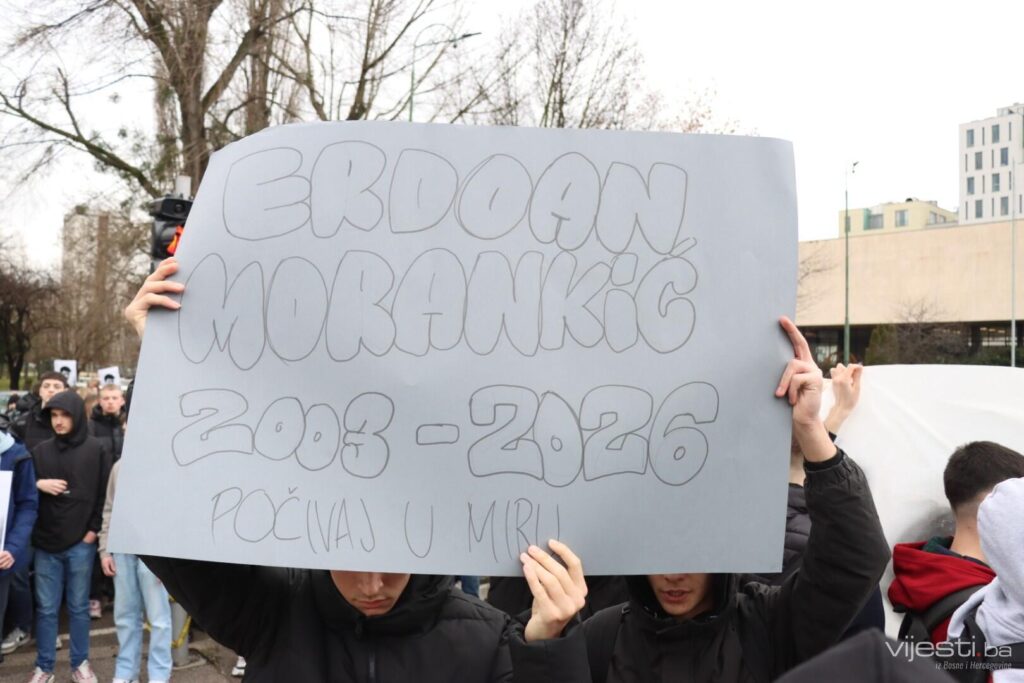 ERDOAN
MORANKIĆ
2003-2026
POČIVAJ U MIRU
vijesti.ba
iz Bosne i Hercegovine